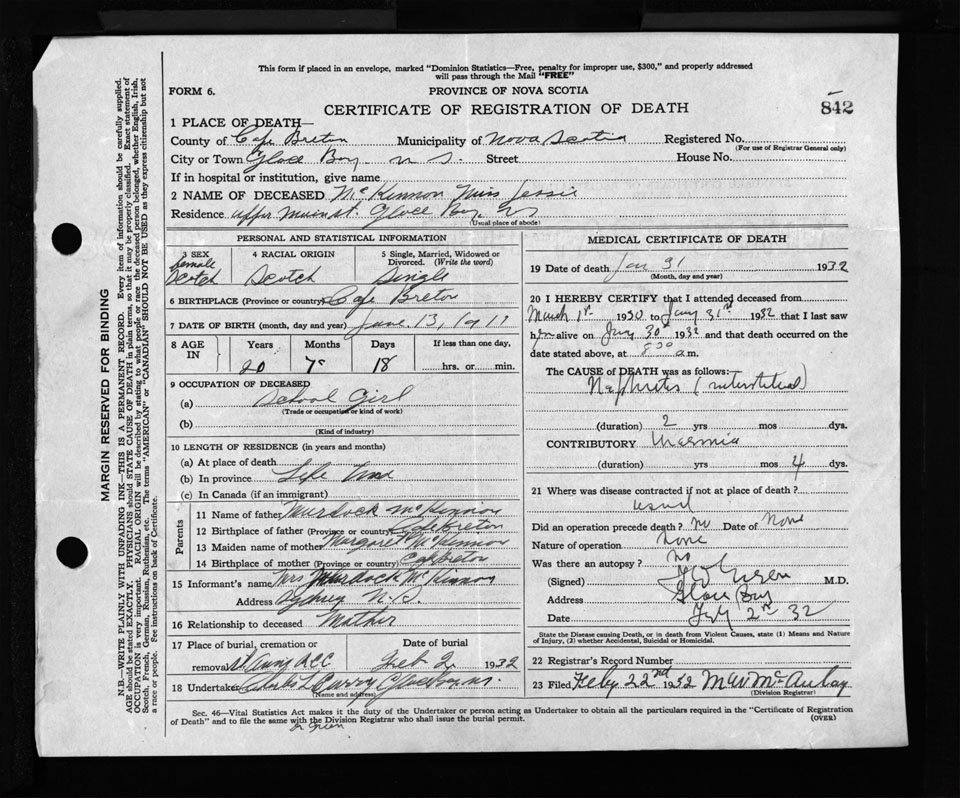 This form if placed in an envelope, marked "Dominion Statistics—Free, penalty for improper use, $300," and properly addressed
will pass through the Mail "FREE"
FORM 6.
PROVINCE OF NOVA SCOTIA
CERTIFICATE OF REGISTRATION OF DEATH
842
1 PLACE OF DEATH—
County of Cape Breton Municipality of Nova Scotia Registered No.
(For use of Registrar General only)
City or Town Glace Bay N S. Street House No.
If in hospital or institution, give name
2 NAME OF DECEASED McKinnon Miss Jessie
Residence Upper Main St. Glace Bay NS
(Usual place of abode)
PERSONAL AND STATISTICAL INFORMATION
3 SEX 4 RACIAL ORIGIN 5 Single, Married, Widowed or
Divorced. (Write the word)
female
Scotch Scotch Single
6 BIRTHPLACE (Province or country) Cape Breton
7 DATE OF BIRTH (month, day and year) June 13, 1911
8 AGE IN Years Months Days If less than one day,
20 7 18 hrs. or min.
9 OCCUPATION OF DECEASED
(a) School Girl
(Trade or occupation or kind of work)
(b)
(Kind of industry)
10 LENGTH OF RESIDENCE (in years and months)
(a) At place of death
(b) In province Life time
(c) In Canada (if an immigrant)
Parents
11 Name of father Murdock McKinnon
12 Birthplace of father (Province or country) Cape Breton
13 Maiden name of mother Margaret McKinnon
14 Birthplace of mother (Province or country) Cape Breton
15 Informant's name Mrs Murdock McKinnon
Address Sydney N.S.
16 Relationship to deceased Mother
17 Place of burial, cremation or Date of burial
removal Feb 2 1932
18 Undertaker Curry Glace Bay NS
(Name and address)
MEDICAL CERTIFICATE OF DEATH
19 Date of death Jan 31 1932
(Month, day and year)
20 I HEREBY CERTIFY that I attended deceased from
March 1st 1930 to Jany 31st 1932 that I last saw
her alive on Jany 30th 1932 and that death occurred on the
date stated above, at 8 30 a.m.
The CAUSE of DEATH was as follows:
Nephritis (interstitial)
(duration) 2 yrs mos dys.
CONTRIBUTORY Uraemia
(duration) yrs mos 4 dys.
21 Where was disease contracted if not at place of death?
usual
Did an operation precede death? no Date of None
Nature of operation None
Was there an autopsy? no
(Signed) M.D.
Address Glace Bay
Date Feb 2nd 32
State the Disease causing Death, or in death from Violent Causes, state (1) Means and Nature
of Injury, (2) whether Accidental, Suicidal or Homicidal.
22 Registrar's Record Number
23 Filed Feby 22nd 1932 McAulay
(Division Registrar)
Sec. 46—Vital Statistics Act makes it the duty of the Undertaker or person acting as Undertaker to obtain all the particulars required in the "Certificate of Registration
of Death" and to file the same with the Division Registrar who shall issue the burial permit.
(OVER)
Dr Green
MARGIN RESERVED FOR BINDING
N.B.—WRITE PLAINLY WITH UNFADING INK—THIS IS A PERMANENT RECORD. Every item of information should be carefully supplied.
AGE should be stated EXACTLY. PHYSICIANS should STATE CAUSE OF DEATH in plain terms, so that it may be properly classified. Exact statement of
OCCUPATION is very important. RACIAL ORIGIN will be described by stating to what people or race the deceased person belonged, whether English, Irish,
Scotch, French, German, Russian, Ruthenian, etc. The terms "AMERICAN" or "CANADIAN" SHOULD NOT BE USED as they express citizenship but not
a race or people. See instructions on back of Certificate.